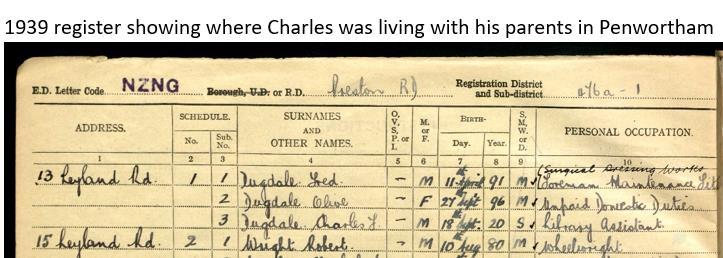 1939 register showing where Charles was living with his parents in Penwortham
E.D. Letter Code NZNG Borough, U.D. or R.D. Preston RD Registration District and Sub-district 476a - 1
ADDRESS. SCHEDULE. No. Sub. No. SURNAMES AND OTHER NAMES. O. V. S. P. or I. M. or F. BIRTH- Day. Year. S. M. W. or D. PERSONAL OCCUPATION.
1 2 3 4 5 6 7 8 9 10
(Surgical Dressing Works
13 Leyland Rd. 1 1 Dugdale Fred. – M 11 April 91 M Foreman Maintenance
2 Dugdale Olive – F 27 Sept 96 M Unpaid Domestic Duties
3 Dugdale Charles F. – M 18 Sept. 20 S Library Assistant.
15 Leyland Rd. 2 1 Wright Robert. – M 10 Aug 80 M Wheelwright